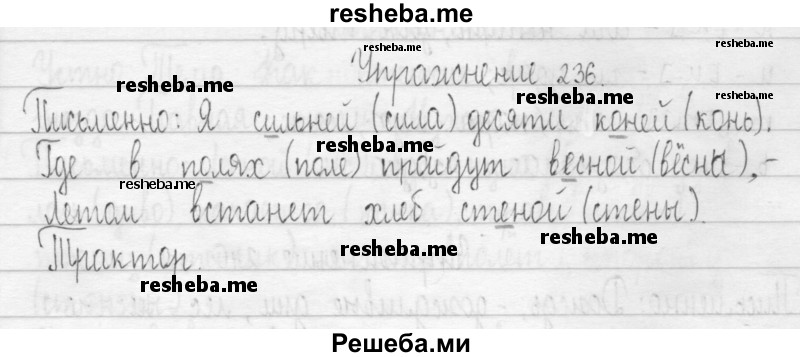 resheba.me
Упражнение 236.
Письменно: Я сильней (сила) десяти коней (конь).
Где в полях (поле) пройдут весной (вёсны), -
Летом встанет хлеб стеной (стены).
Трактор.
resheba.me
resheba.me
resheba.me
resheba.me
resheba.me
resheba.me
resheba.me
resheba.me
Решеба.ми